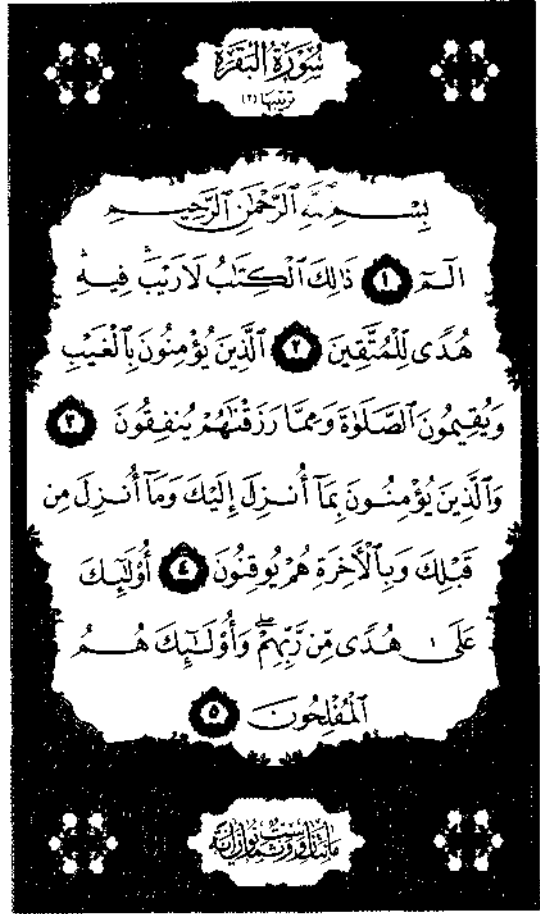 سُورَةُ البَقَرَة
ترتيبها (٢)
بِسْمِ ٱللَّهِ ٱلرَّحْمَٰنِ ٱلرَّحِيمِ
الٓمٓ ١ ذَٰلِكَ ٱلْكِتَٰبُ لَا رَيْبَۛ فِيهِۛ
هُدًى لِّلْمُتَّقِينَ ٢ ٱلَّذِينَ يُؤْمِنُونَ بِٱلْغَيْبِ
وَيُقِيمُونَ ٱلصَّلَوٰةَ وَمِمَّا رَزَقْنَٰهُمْ يُنفِقُونَ ٣
وَٱلَّذِينَ يُؤْمِنُونَ بِمَآ أُنزِلَ إِلَيْكَ وَمَآ أُنزِلَ مِن
قَبْلِكَ وَبِٱلْأَخِرَةِ هُمْ يُوقِنُونَ ٤ أُو۟لَٰٓئِكَ
عَلَىٰ هُدًى مِّن رَّبِّهِمْۖ وَأُو۟لَٰٓئِكَ هُمُ
ٱلْمُفْلِحُونَ ٥